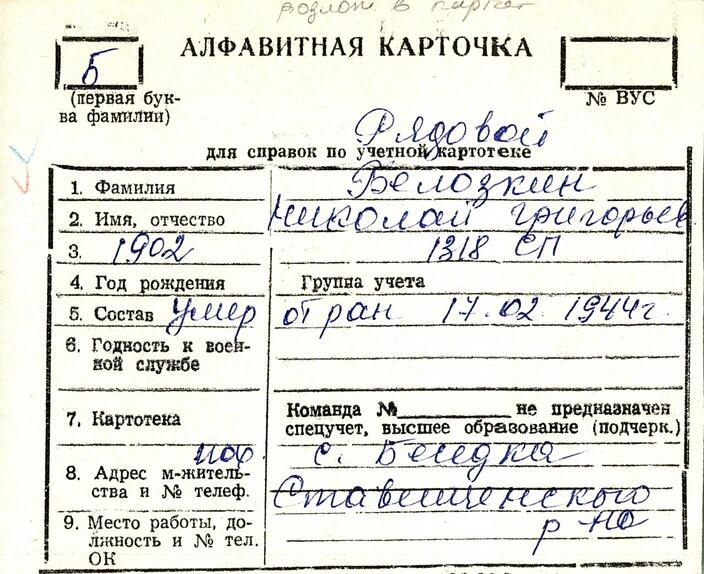 в
АЛФАВИТНАЯ КАРТОЧКА
Б
(первая бук-
ва фамилии)
№ ВУС
Рядовой
для справок по учетной картотеке
1. Фамилия Белозкин
2. Имя, отчество Николай Григорьев
3. 1902 1318 СП
4. Год рождения Группа учета
5. Состав умер от ран 17.02 1944г.
6. Годность к воен-
ной службе
7. Картотека Команда № не предназначен
спецучет, высшее образование (подчерк.)
пох с. Беседка
8. Адрес м-житель-
ства и № телеф. Ставищенского
р-на
9. Место работы, до-
лжность и № тел.
ОК